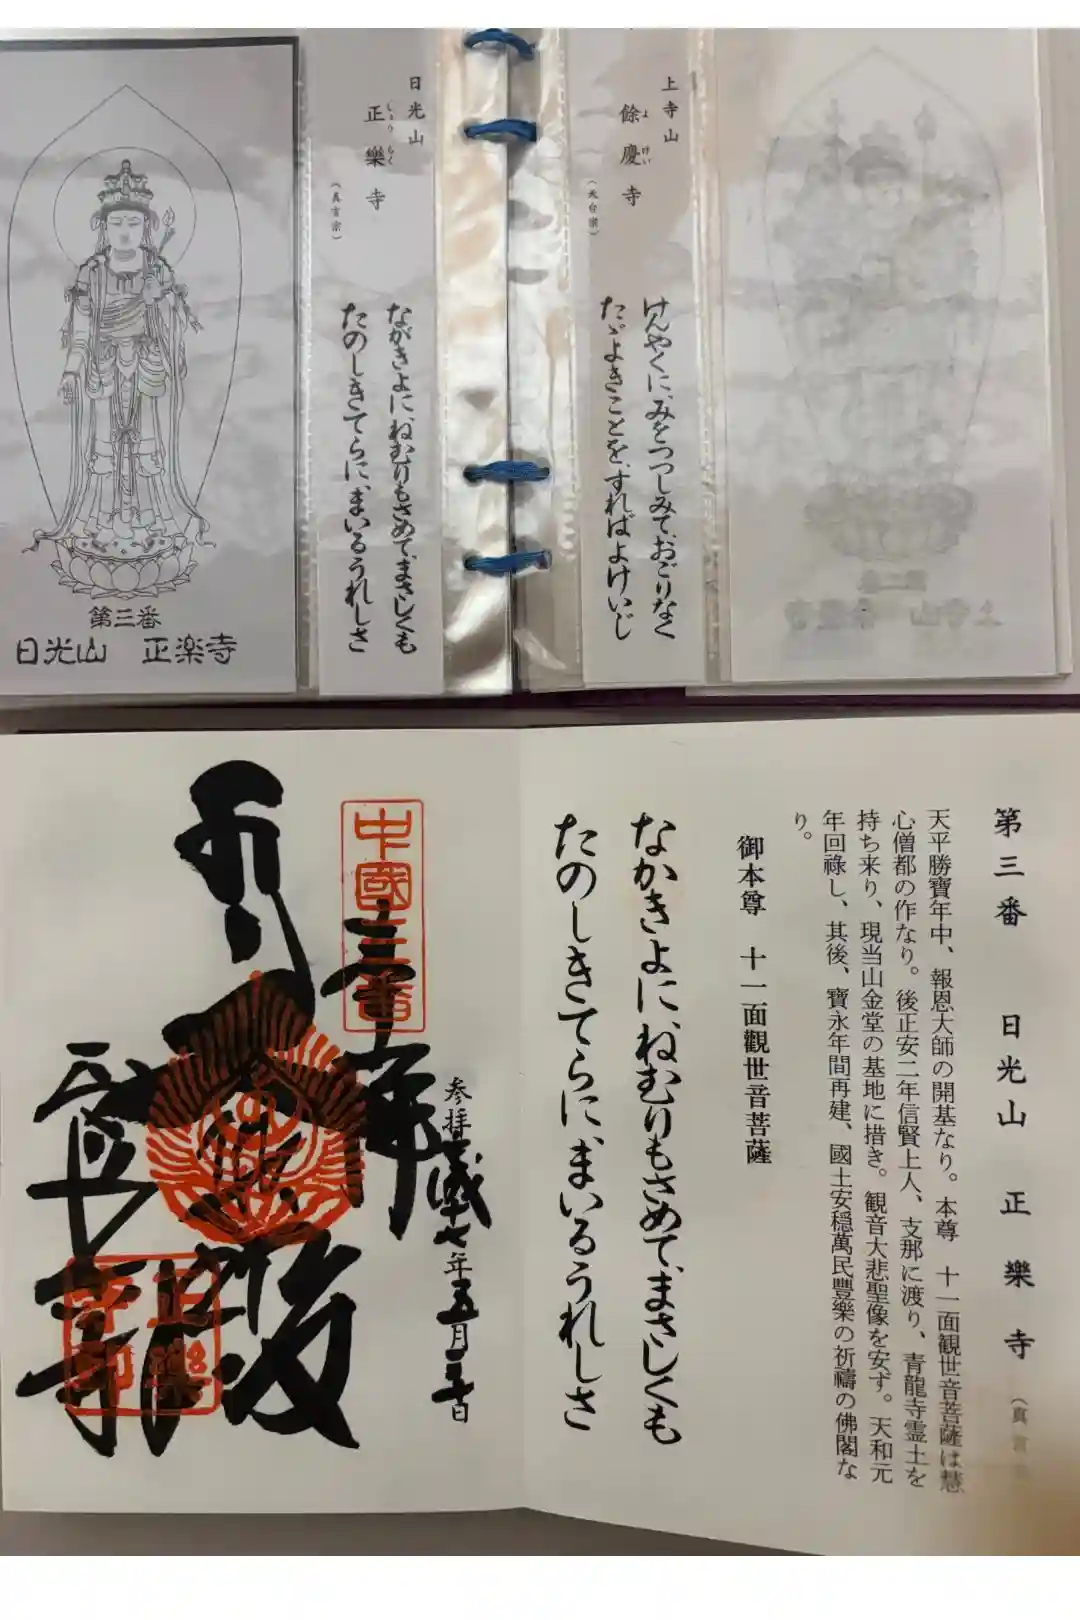 上寺山
餘慶寺
よけい
（天台宗）
けんやくに、みをつつしみて、おごりなく
たゞよきことを、すればよけいじ
日光山
正樂寺
しょうらく
（真言宗）
ながきよに、ねむりもさめて、まさしくも
たのしきてらに、まいるうれしさ
第三番
日光山　正楽寺
第三番　日光山　正樂寺（真言
天平勝寶年中、報恩大師の開基なり。本尊　十一面観世音菩薩は慧
心僧都の作なり。後正安二年信賢上人、支那に渡り、青龍寺霊土を
持ち来り、現当山金堂の基地に措き。観音大悲聖像を安ず。天和元
年回祿し、其後、寶永年間再建、國土安穏萬民豐樂の祈禱の佛閣な
り。
御本尊　十一面觀世音菩薩
なかきよに、ねむりもさめて、まさしくも
たのしきてらに、まいるうれしさ
中國三番
奉拝
参拝 令和七年五月三十日
正樂寺印
正樂寺